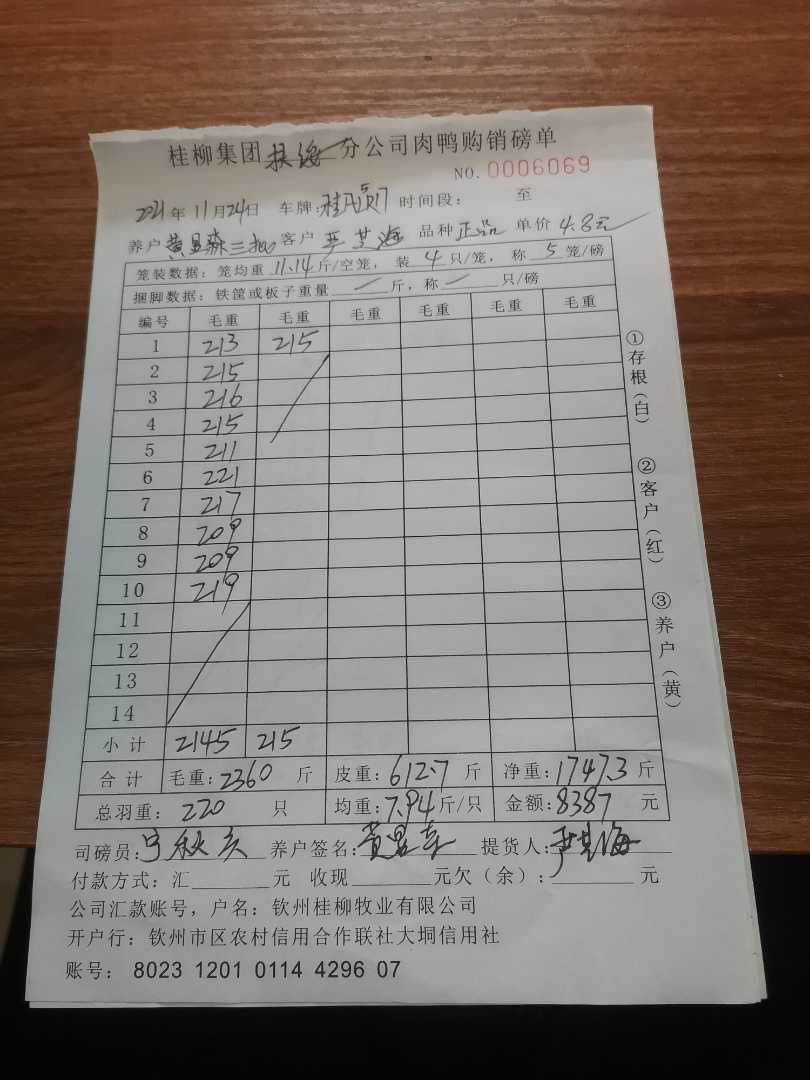 桂柳集团 分公司肉鸭购销磅单
NO. 0006069
2021年11月24日 车牌: 时间段: 至
养户 黄 森三 客户 严 海 品种 正品 单价 4.8元
笼装数据: 笼均重 11.14 斤/空笼, 装 4 只/笼, 称 5 笼/磅
捆脚数据: 铁筐或板子重量 — 斤, 称 — 只/磅
编号 毛重 毛重 毛重 毛重 毛重 毛重
1 213 215
2 215
3 216
4 215
5 211
6 221
7 217
8 209
9 209
10 219
11
12
13
14
小计 2145 215
合计 毛重: 2360 斤 皮重: 612.7 斤 净重: 1747.3 斤
总羽重: 220 只 均重: 7.94 斤/只 金额: 8387 元
司磅员: 养户签名: 提货人:
付款方式: 汇 元 收现 元欠(余): 元
公司汇款账号, 户名: 钦州桂柳牧业有限公司
开户行: 钦州市区农村信用合作联社大垌信用社
账号: 8023 1201 0114 4296 07
①存根(白)
②客户(红)
③养户(黄)